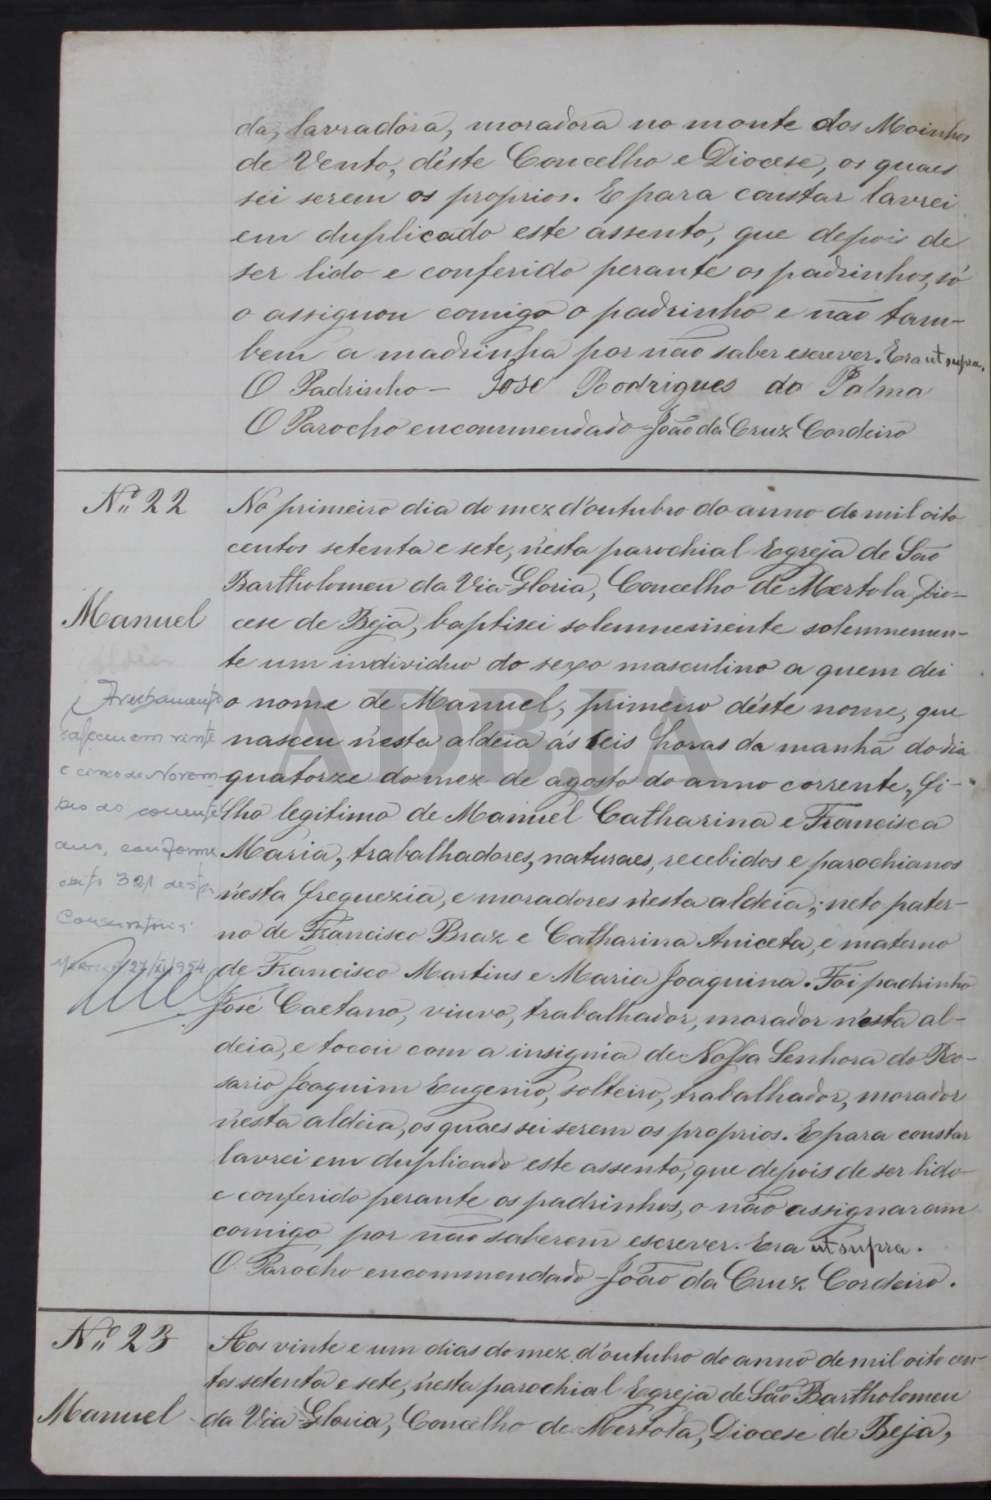 da, lavradora, moradora no monte dos Moinhos
de Vento, d'éste Concelho e Diocese, os quaes
sei serem os proprios. E para constar lavrei
em duplicado este assento, que depois de
ser lido e conferido perante os padrinhos, só
o assignou comigo o padrinho e não tam-
bem a madrinha por não saber escrever. Era ut supra.
O Padrinho — José Rodrigues da Palma
O Parocho encommendado João da Cruz Cordeiro
Nº 22
Manuel
No primeiro dia do mez d'outubro do anno de mil oito
centos setenta e sete, n'esta parochial Egreja de São
Bartholomeu da Via-Gloria, Concelho de Mertola, Dio-
cese de Beja, baptisei solemnemente solemnemen-
te um individuo do sexo masculino a quem dei
o nome de Manuel, primeiro d'éste nome, que
nasceu n'esta aldeia ás seis horas da manhã do dia
quatorze do mez de agosto do anno corrente, fi-
lho legitimo de Manuel Catharina e Francisca
Maria, trabalhadores, naturaes, recebidos e parochianos
n'esta freguezia, e moradores n'esta aldeia; neto pater-
no de Francisco Braz e Catharina Aniceta, e materno
de Francisco Martins e Maria Joaquina. Foi padrinho
José Caetano, viuvo, trabalhador, morador n'esta al-
deia, e tocou com a insignia de Nossa Senhora do Ro-
sario Joaquim Eugenio, solteiro, trabalhador, morador
n'esta aldeia, os quaes sei serem os proprios. E para constar
lavrei em duplicado este assento, que depois de ser lido
e conferido perante os padrinhos, o não assignaram
comigo por não saberem escrever. Era ut supra.
O Parocho encommendado João da Cruz Cordeiro.
faleceu em vinte
e cinco de Novem
bro do corrente
ano, conforme
321 desta
Conservatória
27/XI/954
ADBJA
Nº 23
Manuel
Aos vinte e um dias do mez d'outubro do anno de mil oito cen-
tos setenta e sete, n'esta parochial Egreja de São Bartholomeu
da Via Gloria, Concelho de Mertola, Diocese de Beja,